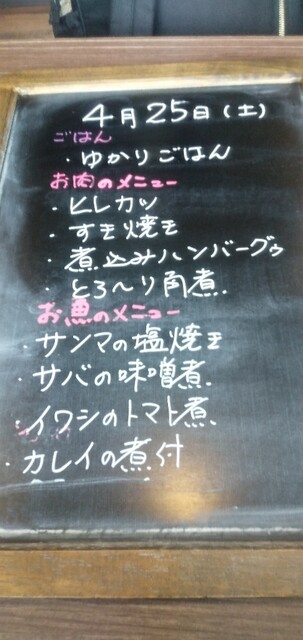 4月25日(土)
ごはん
・ゆかりごはん
お肉のメニュー
・ヒレカツ
・すき焼き
・煮込みハンバーグゥ
・とろ〜り角煮
お魚のメニュー
・サンマの塩焼き
・サバの味噌煮
・イワシのトマト煮
・カレイの煮付